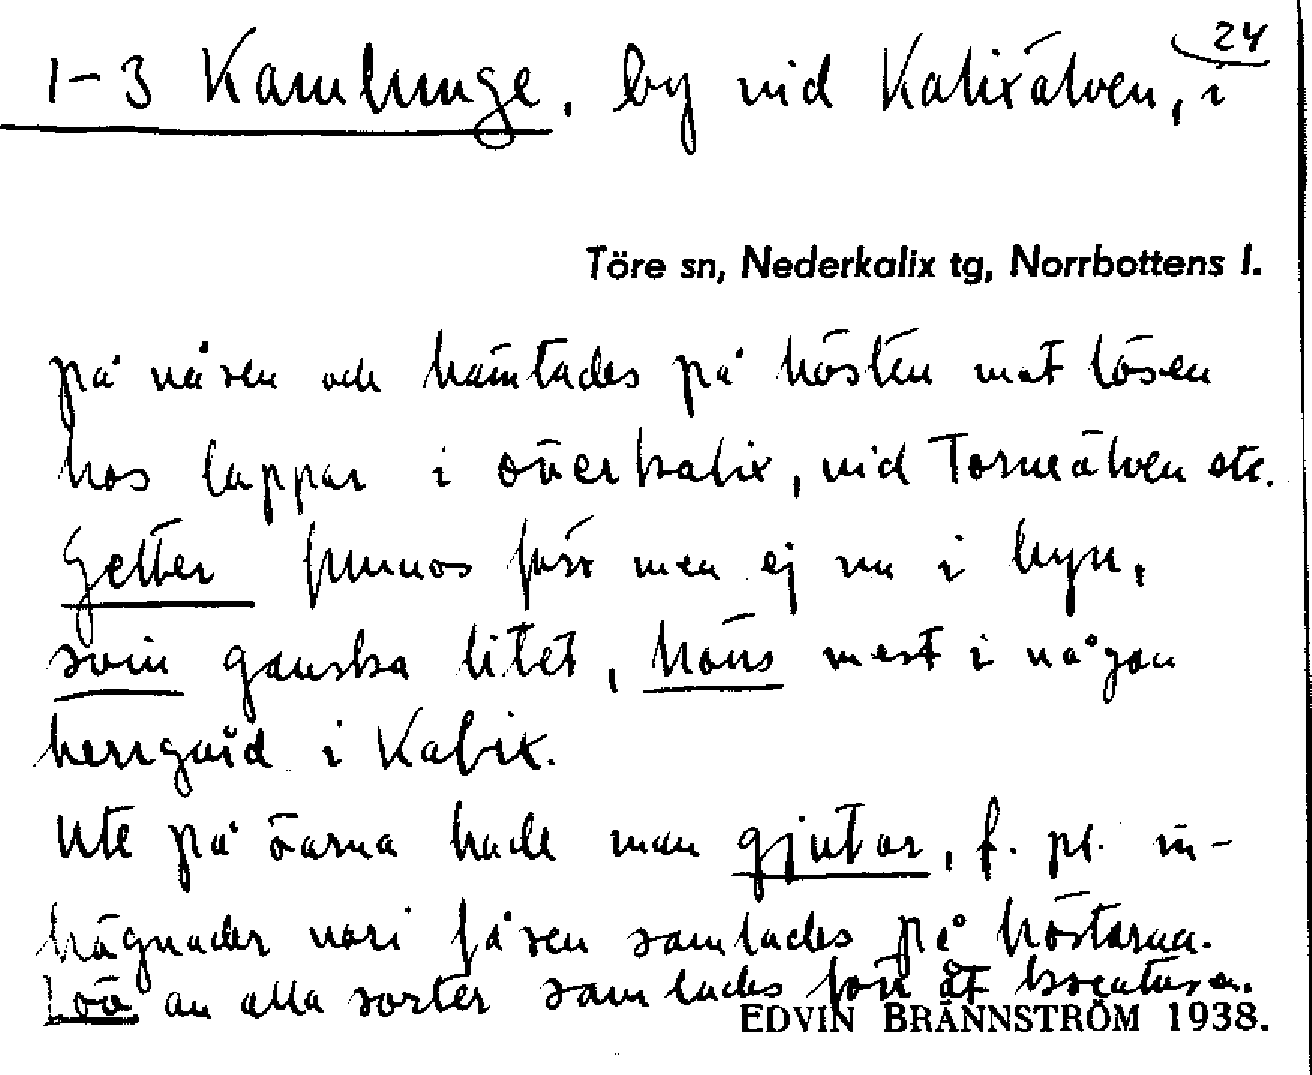 24
1-3 Kamlunge, by vid Kalixälven, i
Töre sn, Nederkalix tg, Norrbottens l.
på våren och hämtades på hösten mot lösen
hos lappar i överkalix, vid Torneälven etc.
Getter funnos förr men ej nu i byn,
svin ganska litet, höns mest i någon
herrgård i Kalix.
Ute på öarna hade man gjutar, f. pl. in-
hägnader vari fåren samlades på höstarna.
Löv av alla sorter samlades för åt kreaturen.
EDVIN BRÄNNSTRÖM 1938.